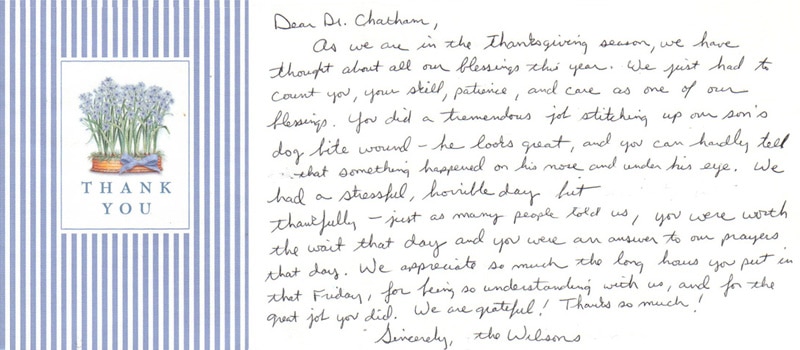 THANK
YOU
Dear Dr. Chatham,
As we are in the thanksgiving season, we have
thought about all our blessings this year. We just had to
count you, your skill, patience, and care as one of our
blessings. You did a tremendous job stitching up our son's
dog bite wound – he looks great, and you can hardly tell
that something happened on his nose and under his eye. We
had a stressful, horrible day but
thankfully – just as many people told us, you were worth
the wait that day and you were an answer to our prayers
that day. We appreciate so much the long hours you put in
that Friday, for being so understanding with us, and for the
great job you did. We are grateful! Thanks so much!
Sincerely, the Wilsons